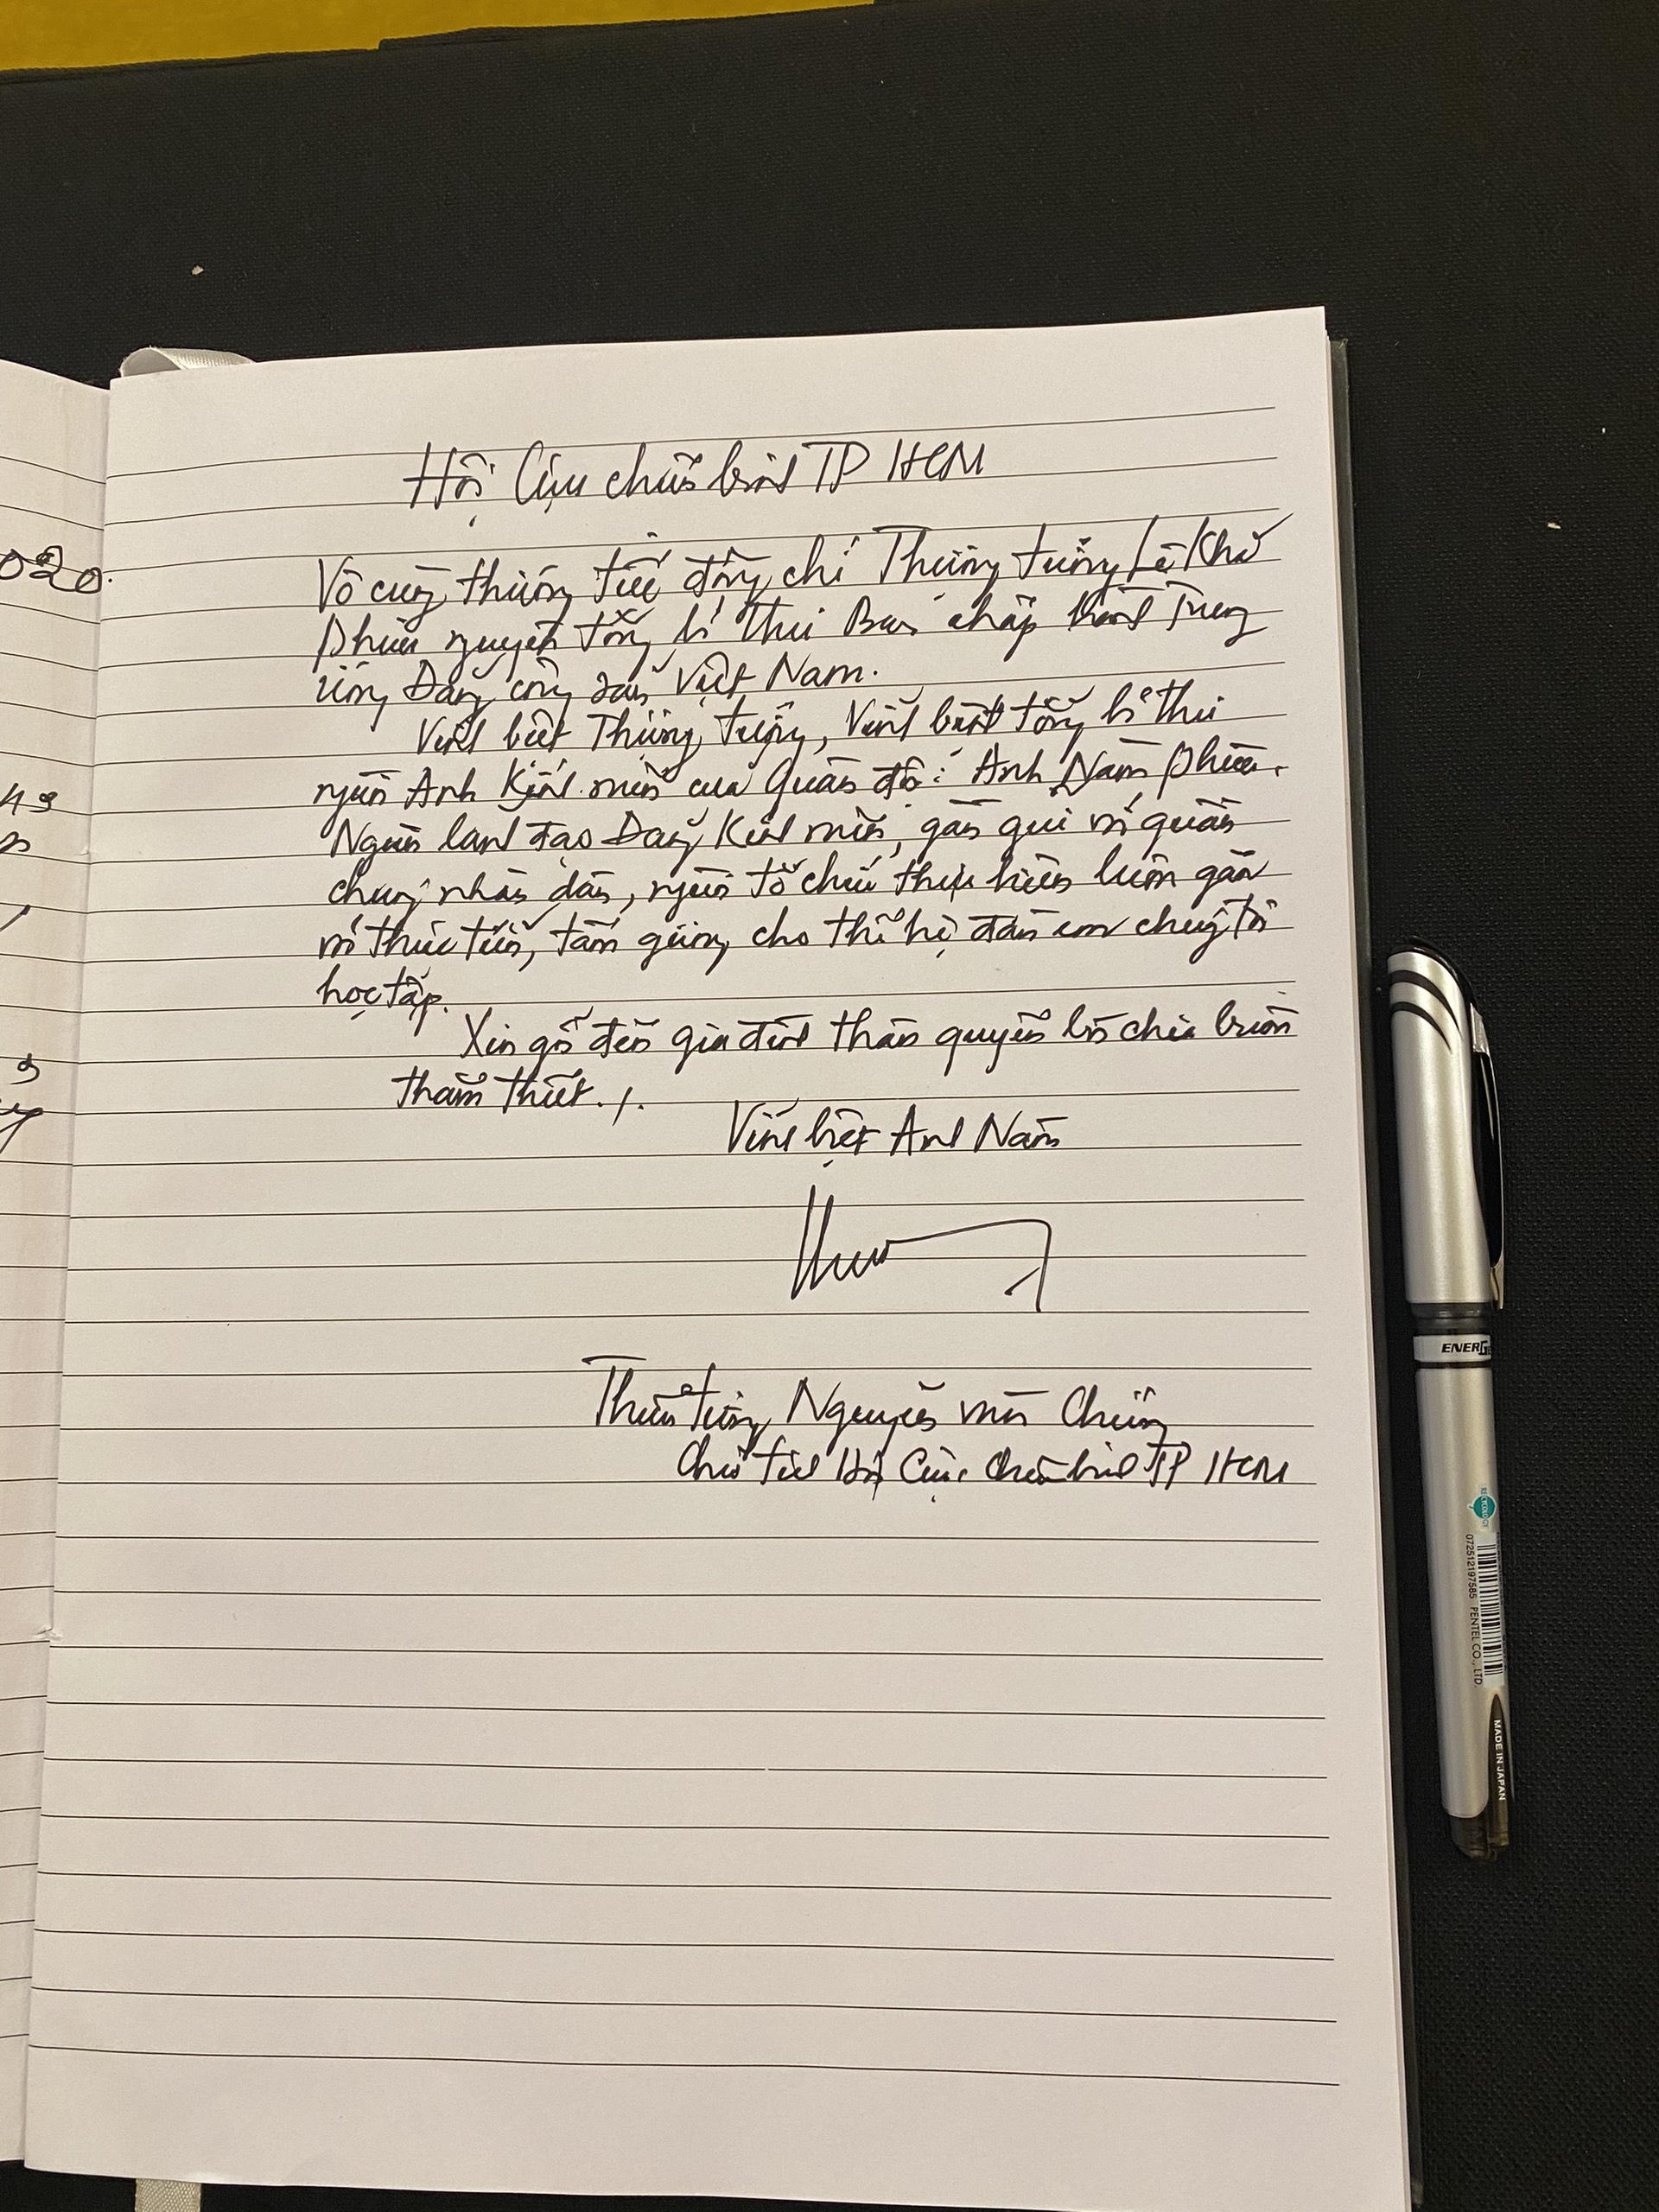 020.
Hội Cựu chiến binh TP HCM
Vô cùng thương tiếc đồng chí Thượng tướng Lê Khả
Phiêu nguyên tổng bí thư Ban chấp hành Trung
ương Đảng cộng sản Việt Nam.
Vĩnh biệt Thượng tướng, Vĩnh biệt tổng bí thư
người Anh Kính mến của Quân đội: Anh Năm Phiêu.
Người lãnh đạo Đảng Kính mến, gần gũi với quần
chúng nhân dân, người tổ chức thực hiện luôn gắn
với thực tiễn, tấm gương cho thế hệ đàn em chúng tôi
học tập.
Xin gởi đến gia đình thân quyến lời chia buồn
thắm thiết./.
Vĩnh biệt Anh Năm
Nguyễn văn Chương
Chủ tịch Hội Cựu Chiến binh TP HCM
ENERG
RECYCOLOGY
072512197585 PENTEL CO., LTD.
MADE IN JAPAN